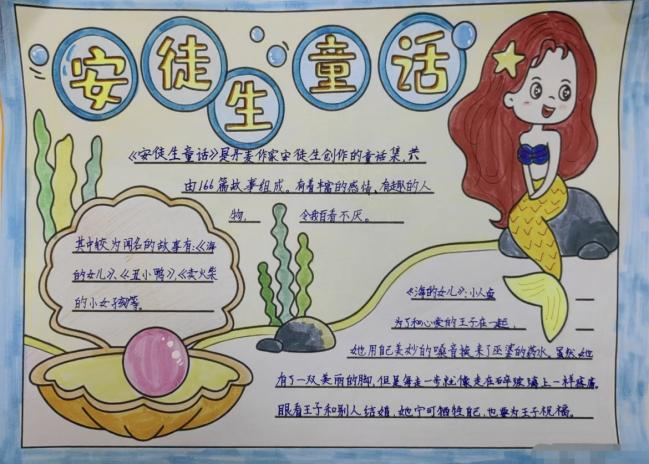 安徒生童话
《安徒生童话》是丹麦作家安徒生创作的童话集,共
由166篇故事组成。有着丰富的感情,有趣的人
物, 令我百看不厌。
其中较为闻名的故事有:《海
的女儿》、《丑小鸭》、《卖火柴
的小女孩》等。
《海的女儿》:小人鱼
为了和心爱的王子在一起,
她用自己美妙的嗓音换来了巫婆的药水。虽然她
有了一双美丽的脚,但是每走一步就像走在碎玻璃上一样疼痛。
眼看王子和别人结婚,她宁可牺牲自己,也要为王子祝福。